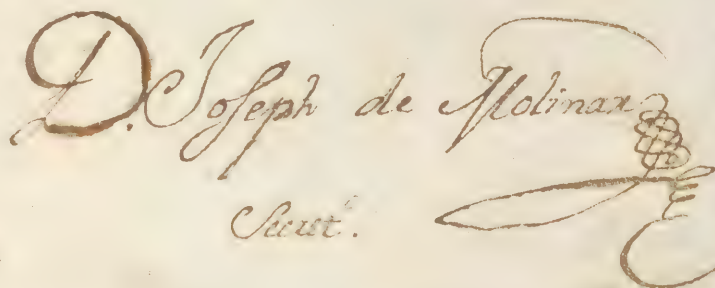 D. Joseph de Molinar
Secret.º